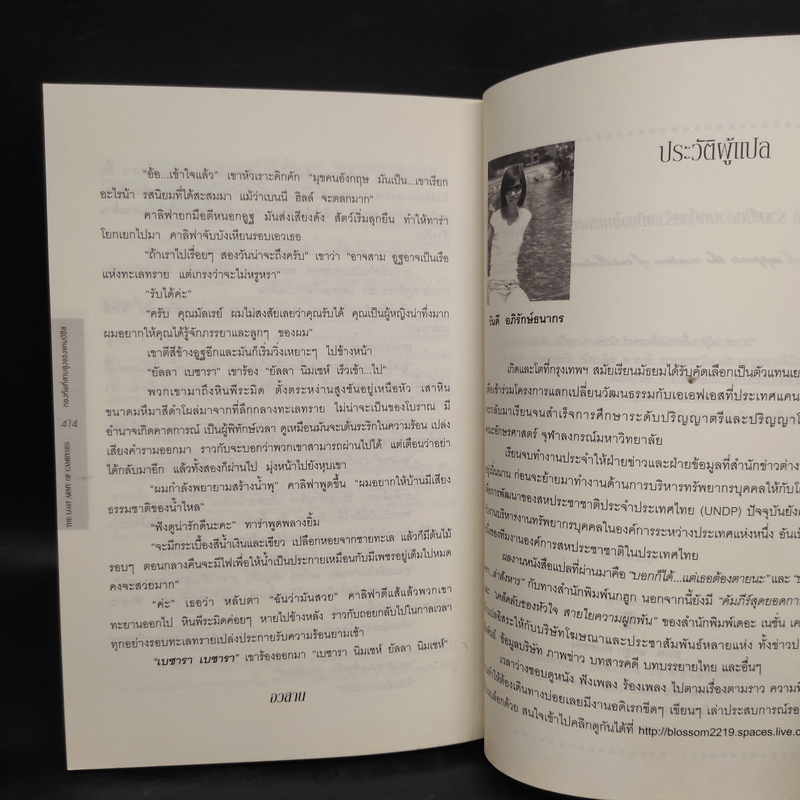 "อ้อ...เข้าใจแล้ว" เขาหัวเราะคิกคัก "มุขคนอังกฤษ มันเป็น...เขาเรียก
อะไรน้า รสนิยมที่ได้สะสมมา แม้ว่าเบนนี ฮิลล์ จะตลกมาก"
คาลิฟายกมือตีหนอกอูฐ มันส่งเสียงดัง สัตว์เริ่มลุกยืน ทำให้ทารา
โยกเยกไปมา คาลิฟาจับบังเหียนรอบเอวเธอ
"ถ้าเราไปเรื่อยๆ สองวันน่าจะถึงครับ" เขาว่า "อาจสาม อูฐอาจเป็นเรือ
แห่งทะเลทราย แต่เกรงว่าจะไม่หรูหรา"
"รับได้ค่ะ"
"ครับ คุณมัลเรย์ ผมไม่สงสัยเลยว่าคุณรับได้ คุณเป็นผู้หญิงน่าทึ่งมาก
ผมอยากให้คุณได้รู้จักภรรยาและลูกๆ ของผม"
เขาตีสีข้างอูฐอีกและมันก็เริ่มวิ่งเหยาะๆ ไปข้างหน้า
"ยัลลา เบซารา" เขาร้อง "ยัลลา นิมเซห์ เร็วเข้า...ไป"
พวกเขามาถึงหินพีระมิด ตั้งตระหง่านสูงชันอยู่เหนือหัว เสาหิน
ขนาดมหึมาสีดำโผล่มาจากที่ลึกกลางทะเลทราย ไม่น่าจะเป็นของโบราณ มี
อำนาจเกิดคาดการณ์ เป็นผู้พิทักษ์เวลา ดูเหมือนมันจะเต้นระริกในความร้อน เปล่ง
เสียงคำรามออกมา ราวกับจะบอกว่าพวกเขาสามารถผ่านไปได้ แต่เตือนว่าอย่า
ได้กลับมาอีก แล้วทั้งสองก็ผ่านไป มุ่งหน้าไปยังหุบเขา
"ผมกำลังพยายามสร้างน้ำพุ" คาลิฟาพูดขึ้น "ผมอยากให้บ้านมีเสียง
ธรรมชาติของน้ำไหล"
"ฟังดูน่ารักดีนะคะ" ทาราพูดพลางยิ้ม
"จะมีกระเบื้องสีน้ำเงินและเขียว เปลือกหอยจากชายทะเล แล้วก็มีต้นไม้
รอบๆ ตอนกลางคืนจะมีไฟเพื่อให้น้ำเป็นประกายเหมือนกับมีเพชรอยู่เต็มไปหมด
คงจะสวยมาก"
"ค่ะ" เธอว่า หลับตา "ฉันว่ามันสวย" คาลิฟาตีแส้แล้วพวกเขา
ทะยานออกไป หินพีระมิดค่อยๆ หายไปข้างหลัง ราวกับถอยกลับไปในกาลเวลา
ทุกอย่างรอบทะเลทรายเปล่งประกายรับความร้อนยามเช้า
"เบซารา เบซารา" เขาร้องออกมา "เบซารา นิมเซห์ ยัลลา นิมเซห์"
อวสาน
กองทัพที่สาบสูญของแคมบีซีส
414
THE LOST ARMY OF CAMBYSES
ประวัติผู้แปล
วันดี อภิรักษ์ธนากร
เกิดและโตที่กรุงเทพฯ สมัยเรียนมัธยมได้รับคัดเลือกเป็นตัวแทนเย
เพื่อเข้าร่วมโครงการแลกเปลี่ยนวัฒนธรรมกับเอเอฟเอสที่ประเทศแคน
จะกลับมาเรียนจนสำเร็จการศึกษาระดับปริญญาตรีและปริญญาโ
คณะอักษรศาสตร์ จุฬาลงกรณ์มหาวิทยาลัย
เรียนจบทำงานประจำให้ฝ่ายข่าวและฝ่ายข้อมูลที่สำนักข่าวต่าง
อยู่นั่นนาน ก่อนจะย้ายมาทำงานด้านการบริหารทรัพยากรบุคคลให้กับโ
เพื่อการพัฒนาของสหประชาชาติประจำประเทศไทย (UNDP) ปัจจุบันยังค
งานบริหารงานทรัพยากรบุคคลในองค์การระหว่างประเทศแห่งหนึ่ง อันเ
หนึ่งของทีมงานองค์การสหประชาชาติในประเทศไทย
ผลงานหนังสือแปลที่ผ่านมาคือ "บอกก็ได้...แต่เธอต้องตายนะ" และ
...ล่าสังหาร" กับทางสำนักพิมพ์นกฮูก นอกจากนี้ยังมี "คัมภีร์สุดยอดการ
และ "เคล็ดลับของหัวใจ สายใยความผูกพัน" ของสำนักพิมพ์เดอะ เนชั่น เค
แปลอิสระให้กับบริษัทโฆษณาและประชาสัมพันธ์หลายแห่ง ทั้งข่าวป
ข้อมูลบริษัท ภาพข่าว บทสารคดี บทบรรยายไทย และอื่นๆ
เวลาว่างชอบดูหนัง ฟังเพลง ร้องเพลง ไปตามเรื่องตามราว ความที
ทำให้ต้องเดินทางบ่อยเลยมีงานอดิเรกขีดๆ เขียนๆ เล่าประสบการณ์รอ
บล็อกด้วย สนใจเข้าไปคลิกดูกันได้ที่ http://blossom2219.spaces.live.c